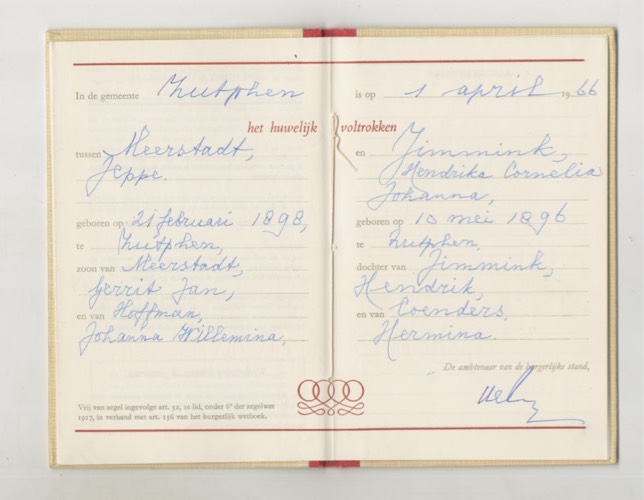 In de gemeente Zutphen
het huwelijk
tussen Meerstadt,
Jeppe.
geboren op 21 februari 1898,
te Zutphen,
zoon van Meerstadt,
Gerrit Jan,
en van Hoffman,
Johanna Willemina,
Vrij van zegel ingevolge art. 32, 1e lid, onder 6° der zegelwet
1917, in verband met art. 136 van het burgerlijk wetboek.
is op 1 april 1966
voltrokken
en Jimmink,
Hendrika Cornelia
Johanna,
geboren op 10 mei 1896
te Zutphen,
dochter van Jimmink,
Hendrik,
en van Coenders,
Hermina.
De ambtenaar van de burgerlijke stand,